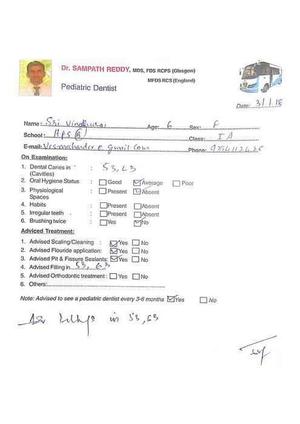 Dr. SAMPATH REDDY, MDS, FDS RCPS (Glasgow)
MFDS RCS (England)
Pediatric Dentist
Date: 3/1/18
Name: Sri Age: 6 Sex: F
School: APS Class: I A
E-mail: Phone:
On Examination:
1. Dental Caries in : 53, 63
(Cavities)
2. Oral Hygiene Status : Good Average Poor
3. Physiological : Present Absent
Spaces
4. Habits : Present Absent
5. Irregular teeth : Present Absent
6. Brushing twice : Yes No
Adviced Treatment:
1. Advised Scaling/Cleaning : Yes No
2. Advised Flouride application: Yes No
3. Advised Pit & Fissure Sealants: Yes No
4. Advised Filling in 53, 63
5. Advised Orthodontic treatment : Yes No
6. Others:
Note: Advised to see a pediatric dentist every 3-6 months Yes No
in 53, 63